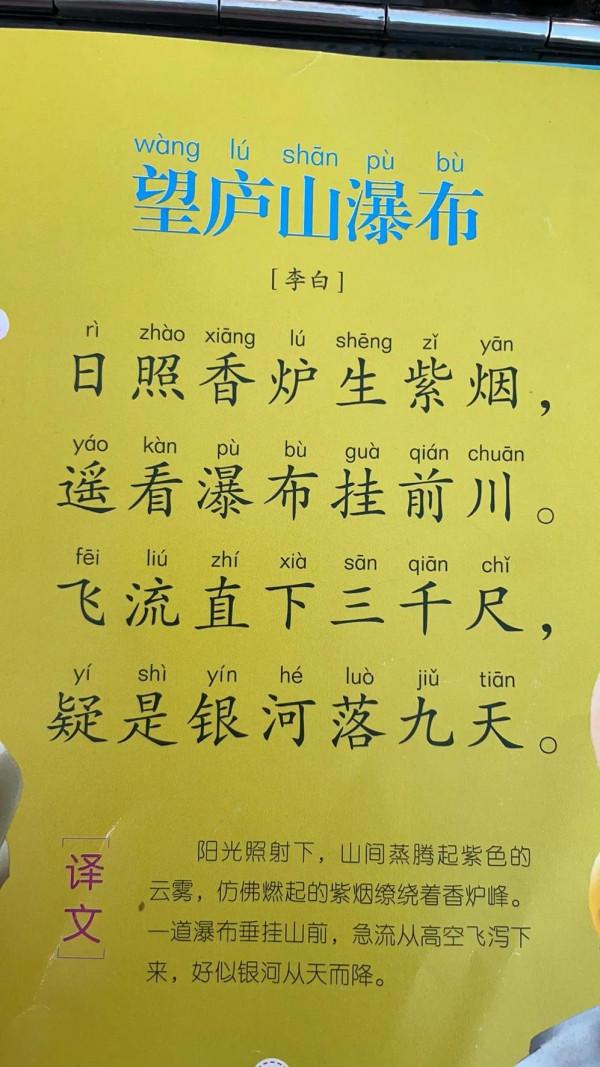 wàng lú shān pù bù
望庐山瀑布
[李白]
rì zhào xiāng lú shēng zǐ yān
日照香炉生紫烟，
yáo kàn pù bù guà qián chuān
遥看瀑布挂前川。
fēi liú zhí xià sān qiān chǐ
飞流直下三千尺，
yí shì yín hé luò jiǔ tiān
疑是银河落九天。
译文
阳光照射下，山间蒸腾起紫色的
云雾，仿佛燃起的紫烟缭绕着香炉峰。
一道瀑布垂挂山前，急流从高空飞泻下
来，好似银河从天而降。